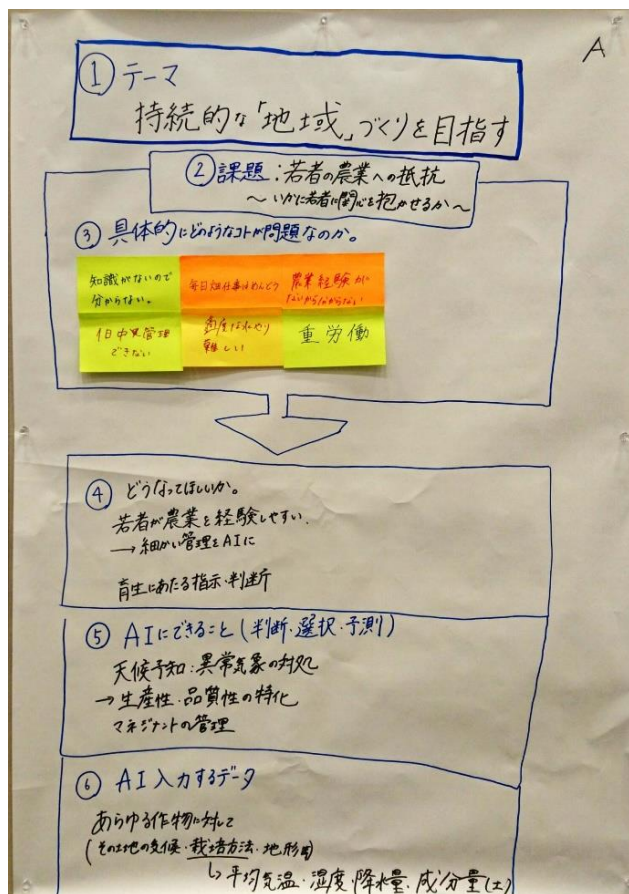 A
① テーマ
持続的な「地域」づくりを目指す
② 課題:若者の農業への抵抗
〜いかに若者に関心を抱かせるか〜
③ 具体的にどのようなコトが問題なのか。
知識がないので
分からない。
毎日畑仕事はめんどう
農業経験が
ないからわからない
1日中見管理
できない
難しい
重労働
④ どうなってほしいか。
若者が農業を経験しやすい.
→細かい管理をAIに
育生にあたる指示・判断
⑤ AIにできること(判断・選択・予測)
天候予知:異常気象の対処
→生産性・品質性の特化
マネジナントの管理
⑥ AI入力するデータ
あらゆる作物に対して
(その土地の気候・栽培方法・地形
↳平均気温・湿度・降水量・成分量(土)